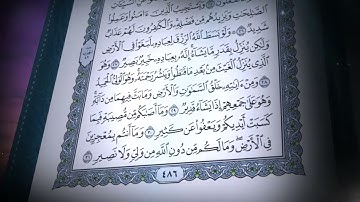 وَيَسْتَجِيبُ ٱلَّذِينَ ءَامَنُوا۟ وَعَمِلُوا۟
ٱلصَّٰلِحَٰتِ وَيَزِيدُهُم مِّن فَضْلِهِۦ ۚ وَٱلْكَٰفِرُونَ لَهُمْ عَذَابٌ
شَدِيدٌ ۝٢٦ ۞ وَلَوْ بَسَطَ ٱللَّهُ ٱلرِّزْقَ لِعِبَادِهِۦ لَبَغَوْا۟ فِى ٱلْأَرْضِ
وَلَٰكِن يُنَزِّلُ بِقَدَرٍ مَّا يَشَآءُ ۚ إِنَّهُۥ بِعِبَادِهِۦ خَبِيرٌۢ بَصِيرٌ ۝٢٧ وَهُوَ
ٱلَّذِى يُنَزِّلُ ٱلْغَيْثَ مِنۢ بَعْدِ مَا قَنَطُوا۟ وَيَنشُرُ رَحْمَتَهُۥ ۚ وَهُوَ ٱلْوَلِىُّ ٱلْحَمِيدُ
۝٢٨ وَمِنْ ءَايَٰتِهِۦ خَلْقُ ٱلسَّمَٰوَٰتِ وَٱلْأَرْضِ وَمَا بَثَّ فِيهِمَا مِن دَآبَّةٍ ۚ
وَهُوَ عَلَىٰ جَمْعِهِمْ إِذَا يَشَآءُ قَدِيرٌ ۝٢٩ وَمَآ أَصَٰبَكُم مِّن مُّصِيبَةٍ فَبِمَا
كَسَبَتْ أَيْدِيكُمْ وَيَعْفُوا۟ عَن كَثِيرٍ ۝٣٠ وَمَآ أَنتُم بِمُعْجِزِينَ
فِى ٱلْأَرْضِ ۖ وَمَا لَكُم مِّن دُونِ ٱللَّهِ مِن وَلِىٍّ وَلَا نَصِيرٍ ۝٣١
٤٨٦